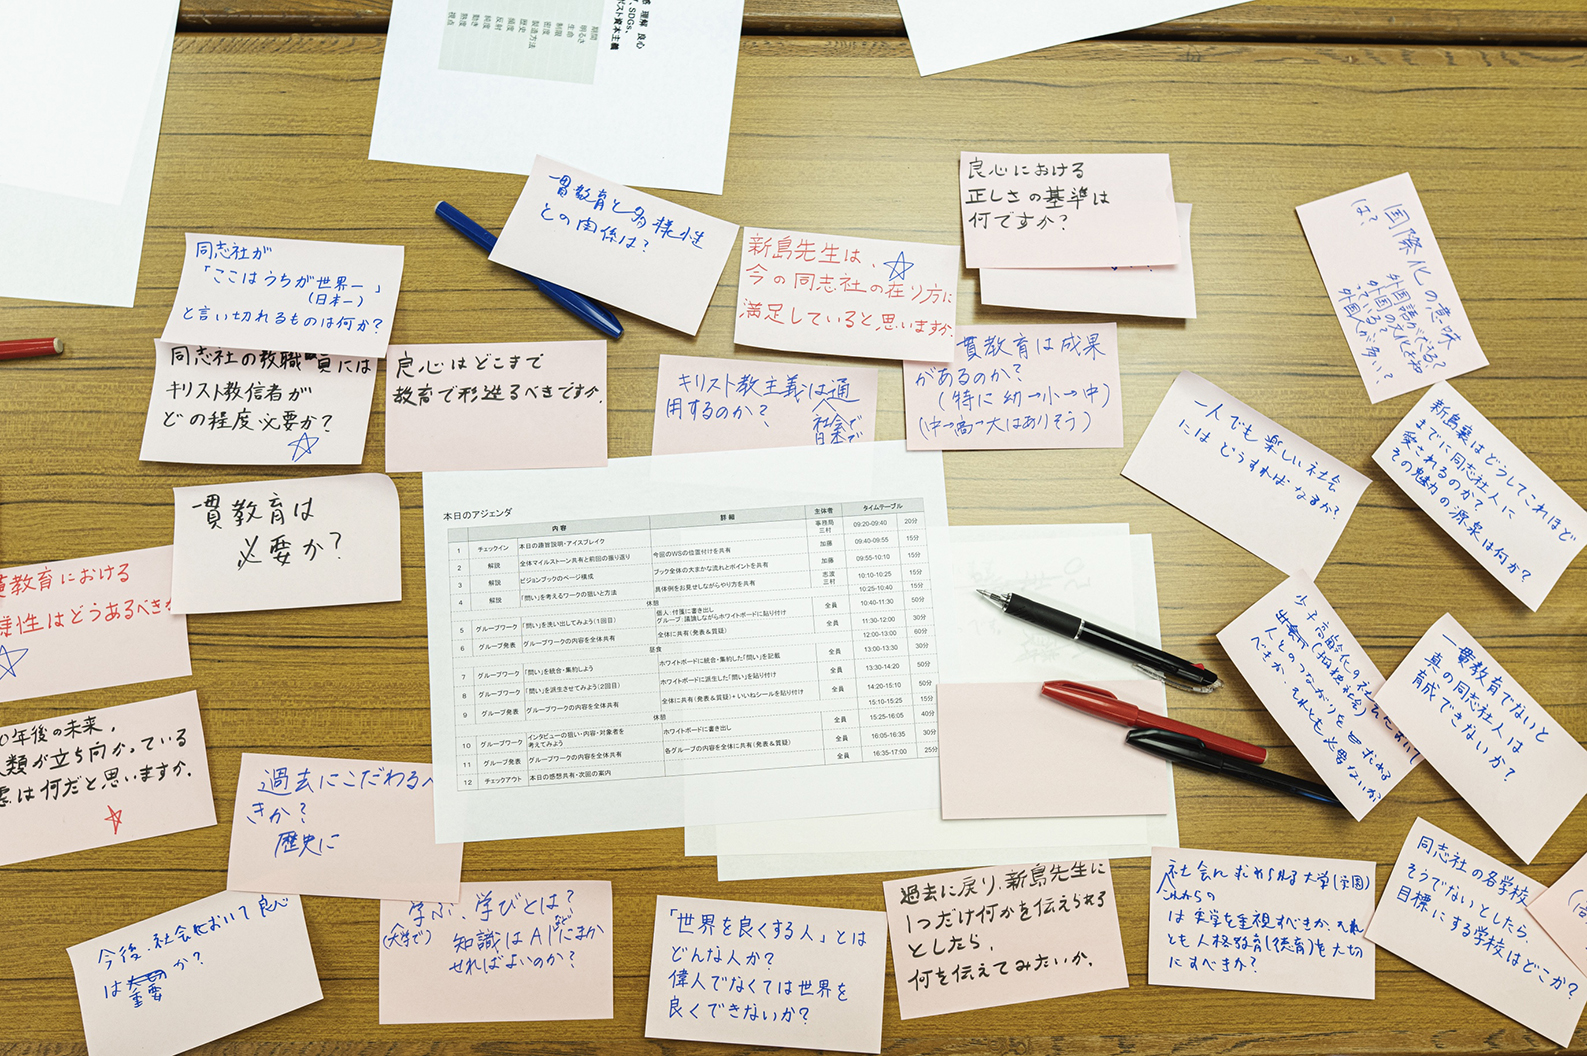 感 理解 良心
、SDGs、
ポスト資本主義
期間
明るさ
生命
制限
密度
製造方法
歴史
頻度
反射
純度
動き
熱度
視点
一貫教育と多様性
との関係は?
良心における
正しさの基準は
何ですか?
国際化の意味
は?
外国語ができる?
外国の文化を知
っている?
外国人が多い?
同志社が
「ここはうちが世界一」
(日本一)
と言い切れるものは何か?
新島先生は、
今の同志社の在り方に
満足していると思いますか。
同志社の教職員には
キリスト教信者が
どの程度必要か?
良心はどこまで
教育で形造るべきですか。
キリスト教主義は通
用するのか?
社会で
日本で
一貫教育は成果
があるのか?
(特に幼→小→中)
(中→高→大はありそう)
一人でも楽しい社会
にはどうすればなるか?
新島襄はどうしてこれほど
までに同志社人に
愛されるのか?
その魅力の源泉は何か?
一貫教育は
必要か?
貫教育における
様性はどうあるべきか
本日のアジェンダ
内容 詳細 主体者 タイムテーブル
1 チェックイン 本日の趣旨説明・アイスブレイク 事務局 三村 09:20-09:40 20分
2 解説 全体マイルストーン共有と前回の振り返り 今回のWSの位置付けを共有 加藤 09:40-09:55 15分
3 解説 ビジョンブックのページ構成 ブック全体の大まかな流れとポイントを共有 加藤 09:55-10:10 15分
4 解説 「問い」を考えるワークの狙いと方法 具体例をお見せしながらやり方を共有 志渡 三村 10:10-10:25 15分
休憩 10:25-10:40 15分
5 グループワーク 「問い」を洗い出してみよう(1回目) 個人:付箋に書き出し グループ:議論しながらホワイトボードに貼り付け 全員 10:40-11:30 50分
6 グループ発表 グループワークの内容を全体共有 全体に共有(発表&質疑) 全員 11:30-12:00 30分
昼食 12:00-13:00 60分
7 グループワーク 「問い」を統合・集約しよう ホワイトボードに統合・集約した「問い」を記載 全員 13:00-13:30 30分
8 グループワーク 「問い」を派生させてみよう(2回目) ホワイトボードに派生した「問い」を貼り付け 全員 13:30-14:20 50分
9 グループ発表 グループワークの内容を全体共有 全体に共有(発表&質疑)+いいねシールを貼り付け 全員 14:20-15:10 50分
休憩 15:10-15:25 15分
10 グループワーク インタビューの狙い・内容・対象者を考えてみよう ホワイトボードに書き出し 全員 15:25-16:05 40分
11 グループ発表 グループワークの内容を全体共有 各グループの内容を全体に共有(発表&質疑) 全員 16:05-16:35 30分
12 チェックアウト 本日の感想共有・次回の案内 全員 16:35-17:00 25分
少子高齢化の社会
(孤独社会)
人とのつながりを
べきか、それとも必要ないか
一貫教育でないと
真の同志社人は
育成できないか?
0年後の未来、
人類が立ち向かっている
は何だと思いますか。
過去にこだわるべ
きか?
歴史に
今後、社会において良心
は重要か?
学ぶ、学びとは?
(大学で)
知識はAIなどにまか
せればよいのか?
「世界を良くする人」とは
どんな人か?
偉人でなくては世界を
良くできないか?
過去に戻り、新島先生に
1つだけ何かを伝えられる
としたら、
何を伝えてみたいか。
社会に求められる大学(学園)
これからの
は実学を重視すべきか、それ
とも人格教育(徳育)を大切
にすべきか?
同志社の各学校
そうでないとしたら、
目標にする学校はどこか?